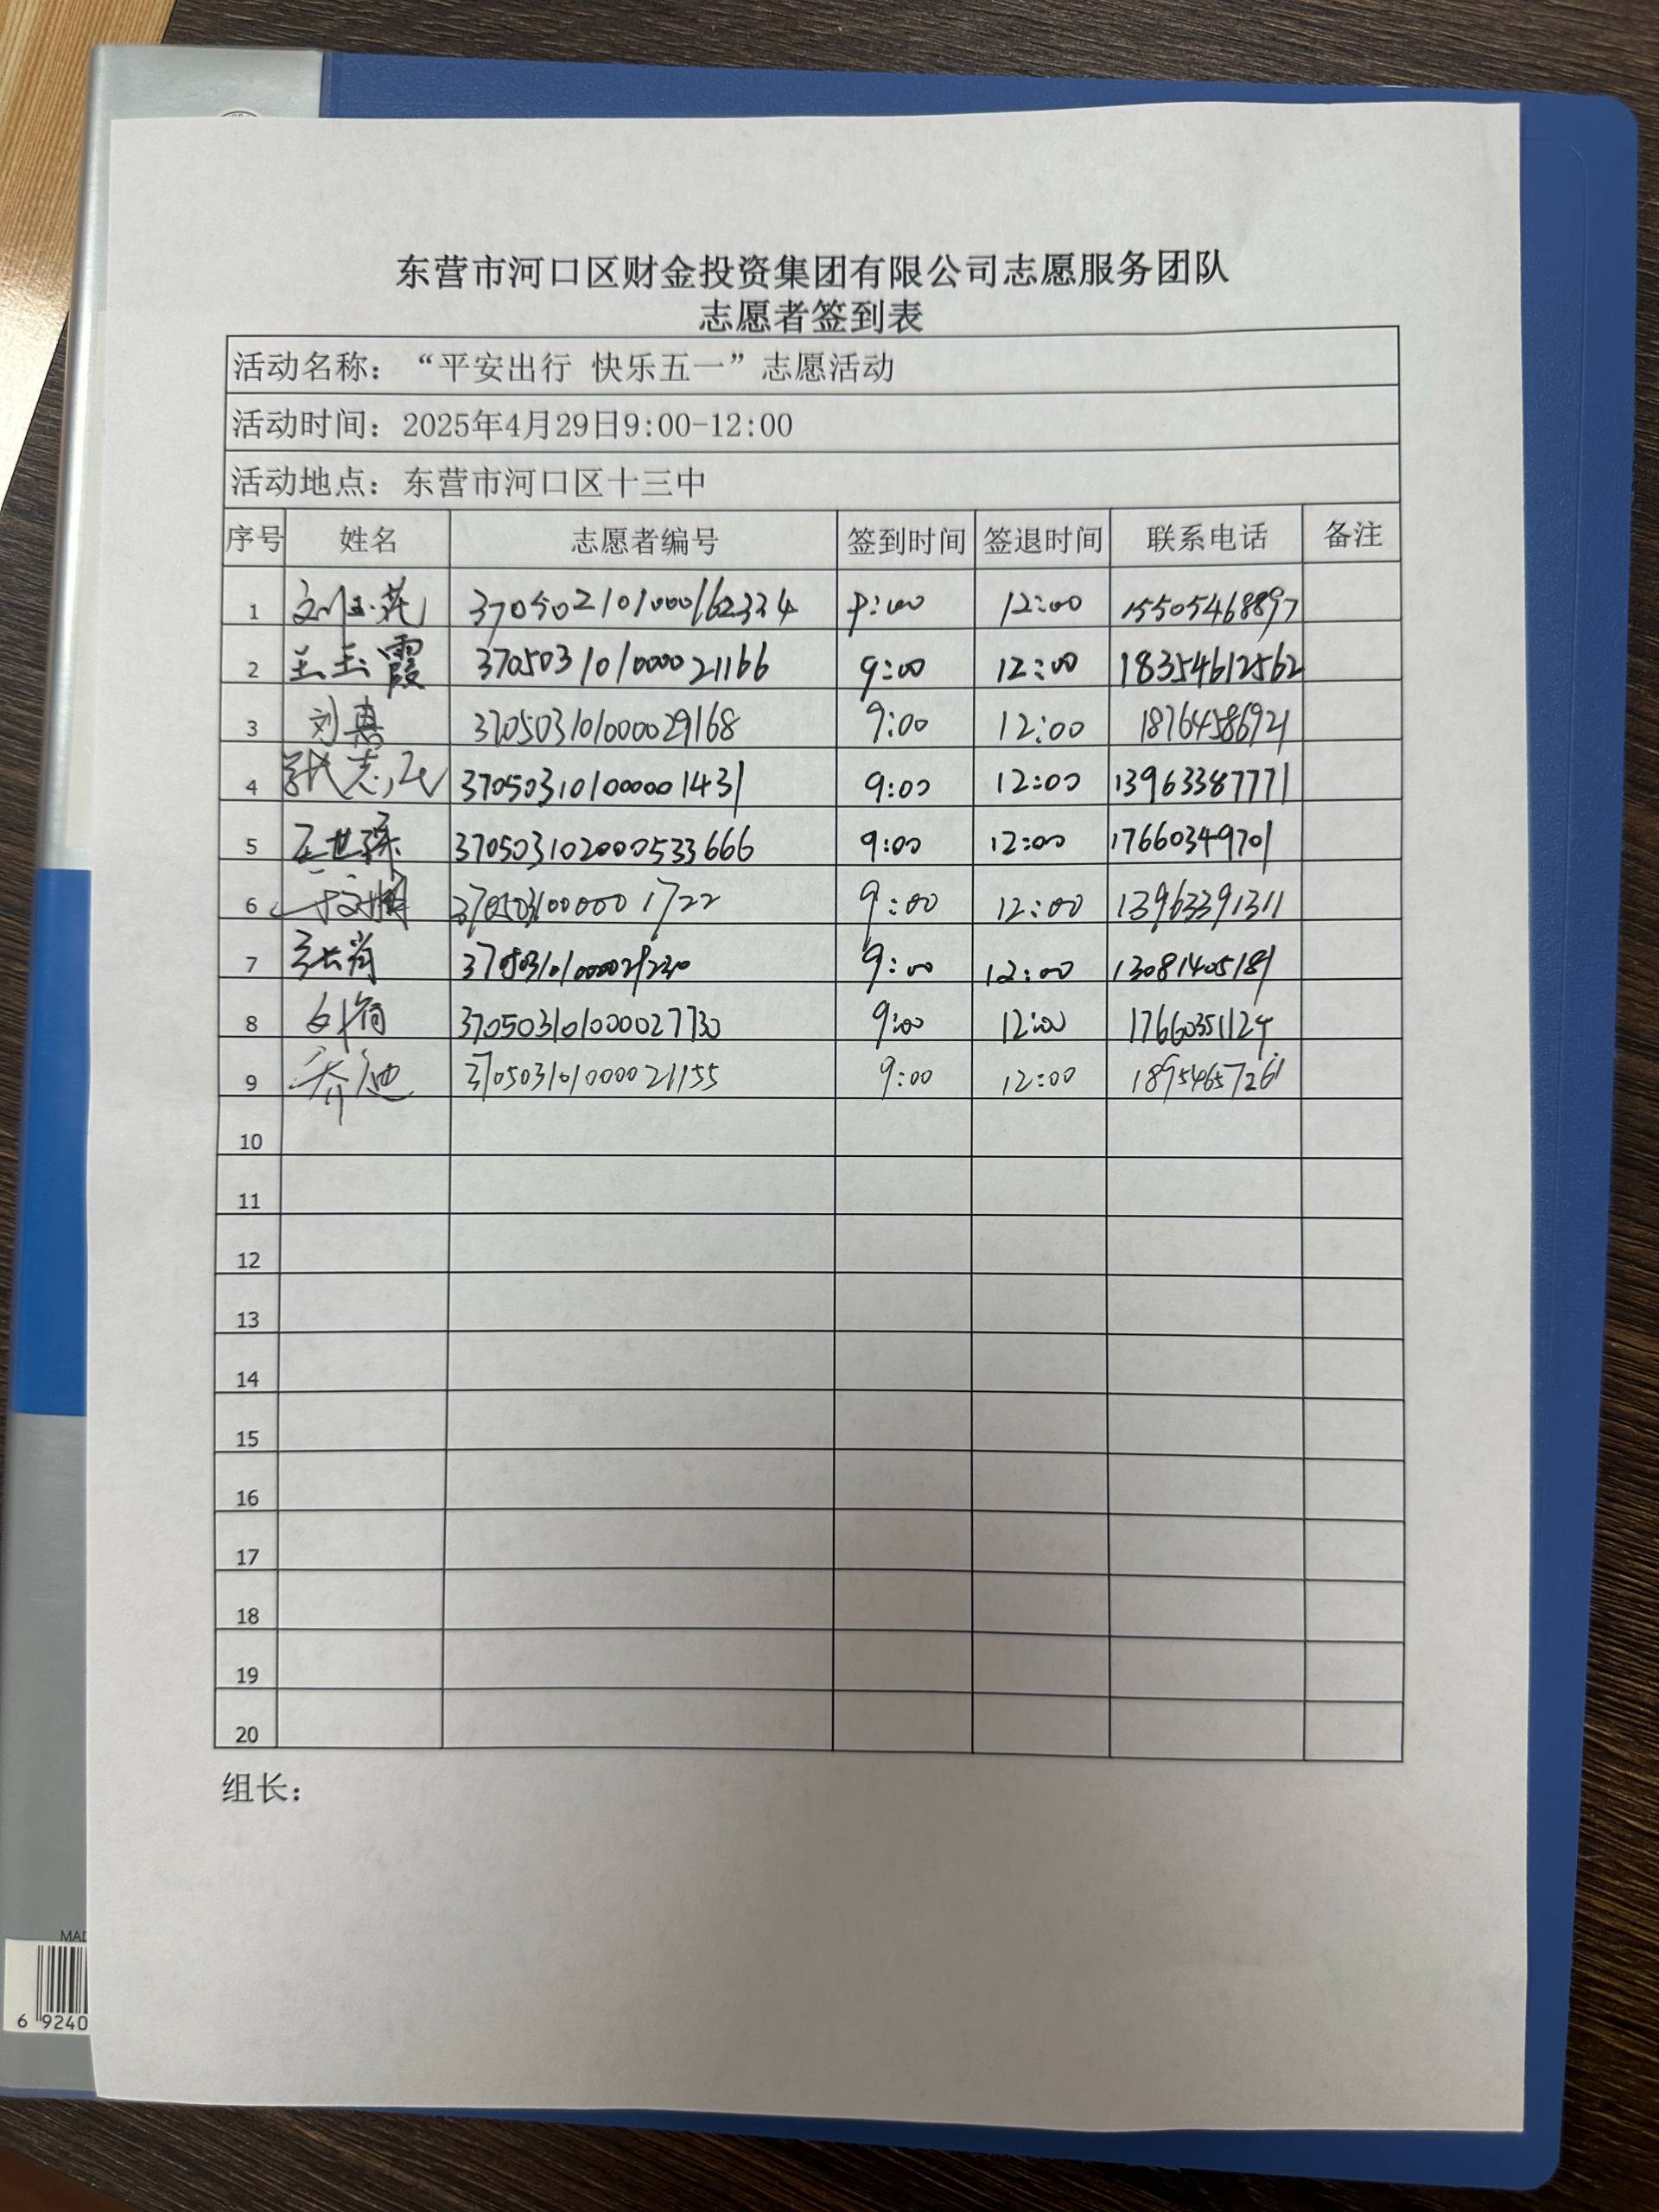 东营市河口区财金投资集团有限公司志愿服务团队
志愿者签到表
活动名称：“平安出行 快乐五一”志愿活动
活动时间：2025年4月29日9:00-12:00
活动地点：东营市河口区十三中
序号 姓名 志愿者编号 签到时间 签退时间 联系电话 备注
1 370502101000162334 9:00 12:00 15505468897
2 王玉霞 370503101000021166 9:00 12:00 18354612562
3 刘惠 370503101000029168 9:00 12:00 18764586921
4 370503101000001431 9:00 12:00 13963387771
5 王世琛 370503102000533666 9:00 12:00 17660349701
6 9:00 12:00 13963391311
7 张肖 370503101000029230 9:00 12:00 13081405181
8 370503101000027730 9:00 12:00 17660351124
9 乔迪 370503101000021155 9:00 12:00 18954657261
10
11
12
13
14
15
16
17
18
19
20
组长：
MAD
6 9240